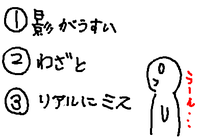 ①影がうすい
②わざと
③リアルにミス
うーん…